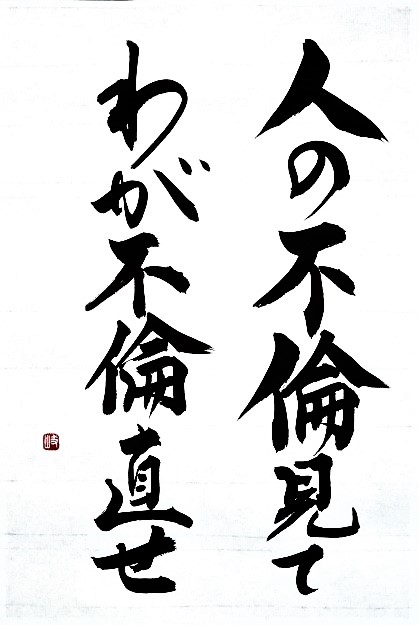 人の不倫見て
わが不倫直せ